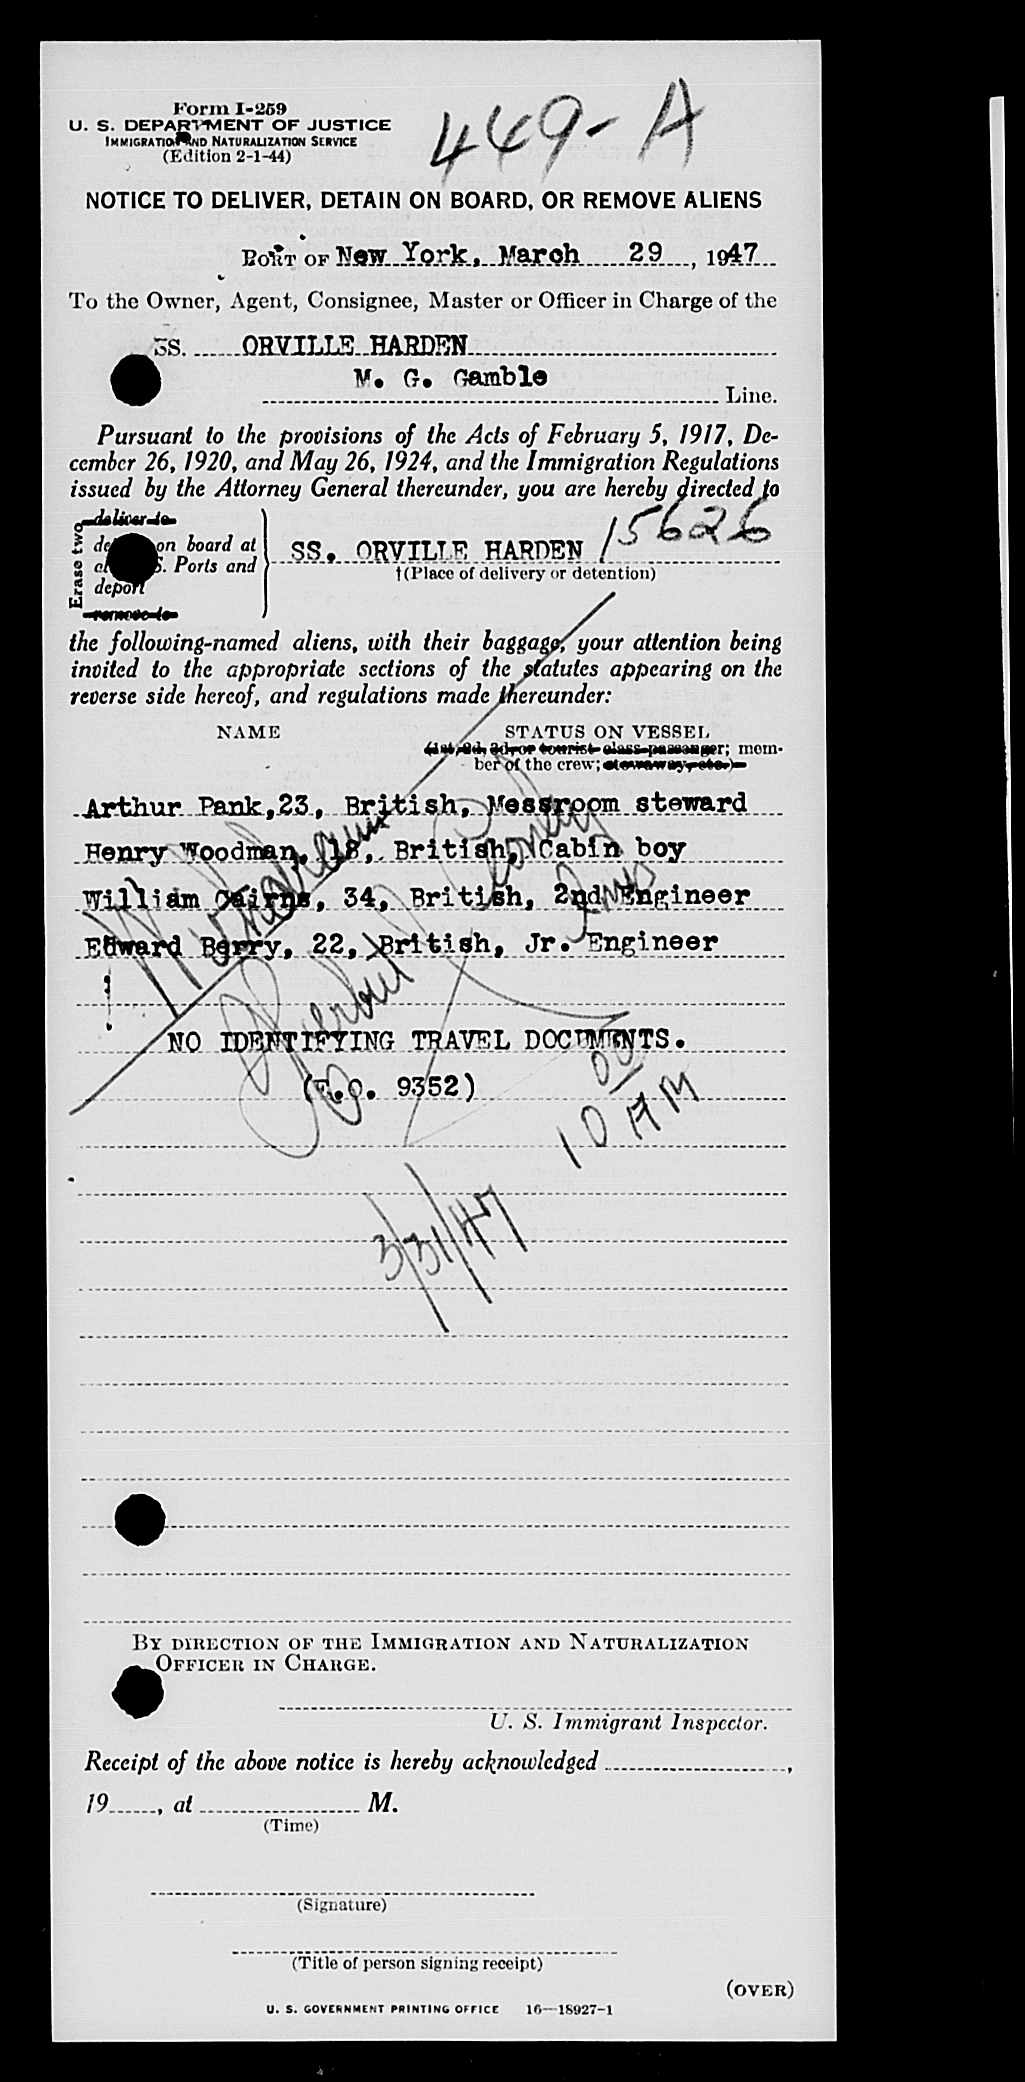 Form I-259
U. S. DEPARTMENT OF JUSTICE
IMMIGRATION AND NATURALIZATION SERVICE
(Edition 2-1-44)
449-A
NOTICE TO DELIVER, DETAIN ON BOARD, OR REMOVE ALIENS
PORT OF New York, March 29, 1947
To the Owner, Agent, Consignee, Master or Officer in Charge of the
SS. ORVILLE HARDEN
M. G. Gamble
Line.
Pursuant to the provisions of the Acts of February 5, 1917, De-
cember 26, 1920, and May 26, 1924, and the Immigration Regulations
issued by the Attorney General thereunder, you are hereby directed to
Erase two
deliver to
on board at
S. Ports and
deport
remove to
SS. ORVILLE HARDEN / 15626
†(Place of delivery or detention)
the following-named aliens, with their baggage, your attention being
invited to the appropriate sections of the statutes appearing on the
reverse side hereof, and regulations made thereunder:
NAME STATUS ON VESSEL
(1st, 2d, 3d, or tourist class passenger; mem-
ber of the crew; stowaway, etc.)
Arthur Pank,23, British, Messroom steward
Henry Woodman, 18, British, Cabin boy
William Cairns, 34, British, 2nd Engineer
Edward Berry, 22, British, Jr. Engineer
NO IDENTIFYING TRAVEL DOCUMENTS.
(E.O. 9352)
10 00 AM
3/31/47
BY DIRECTION OF THE IMMIGRATION AND NATURALIZATION
OFFICER IN CHARGE.
U. S. Immigrant Inspector.
Receipt of the above notice is hereby acknowledged ,
19 , at M.
(Time)
(Signature)
(Title of person signing receipt)
(OVER)
U. S. GOVERNMENT PRINTING OFFICE 16—18927-1